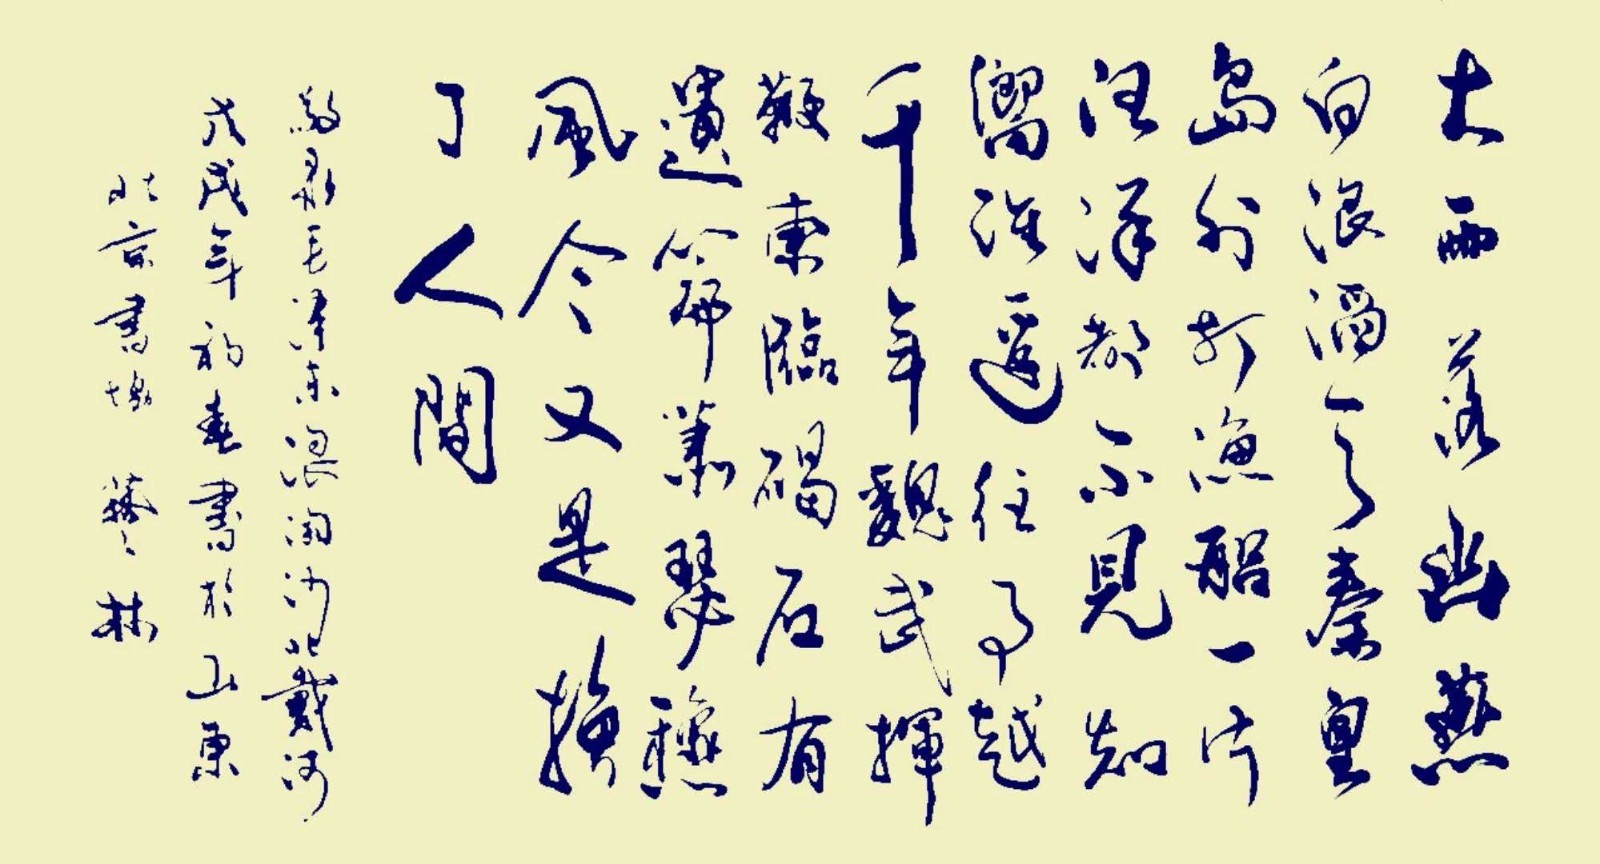 大雨落幽燕
白浪滔天秦皇
島外打漁船一片
汪洋都不見知
嚮誰邊往事越
千年魏武揮
鞭東臨碣石有
遺篇蕭瑟穐
風今又是換
了人間
敬录毛澤东浪淘沙北戴河
戊戌年初春書於山東
北京書 藝林